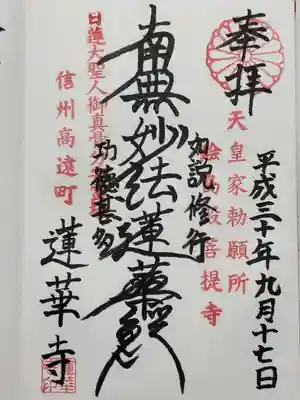 奉拝
天皇家勅願所
絵島殿菩提寺
平成三十年九月十七日
如説修行
南無妙法蓮華経
功徳甚多
日蓮大聖人御真骨
信州高遠町
蓮華寺